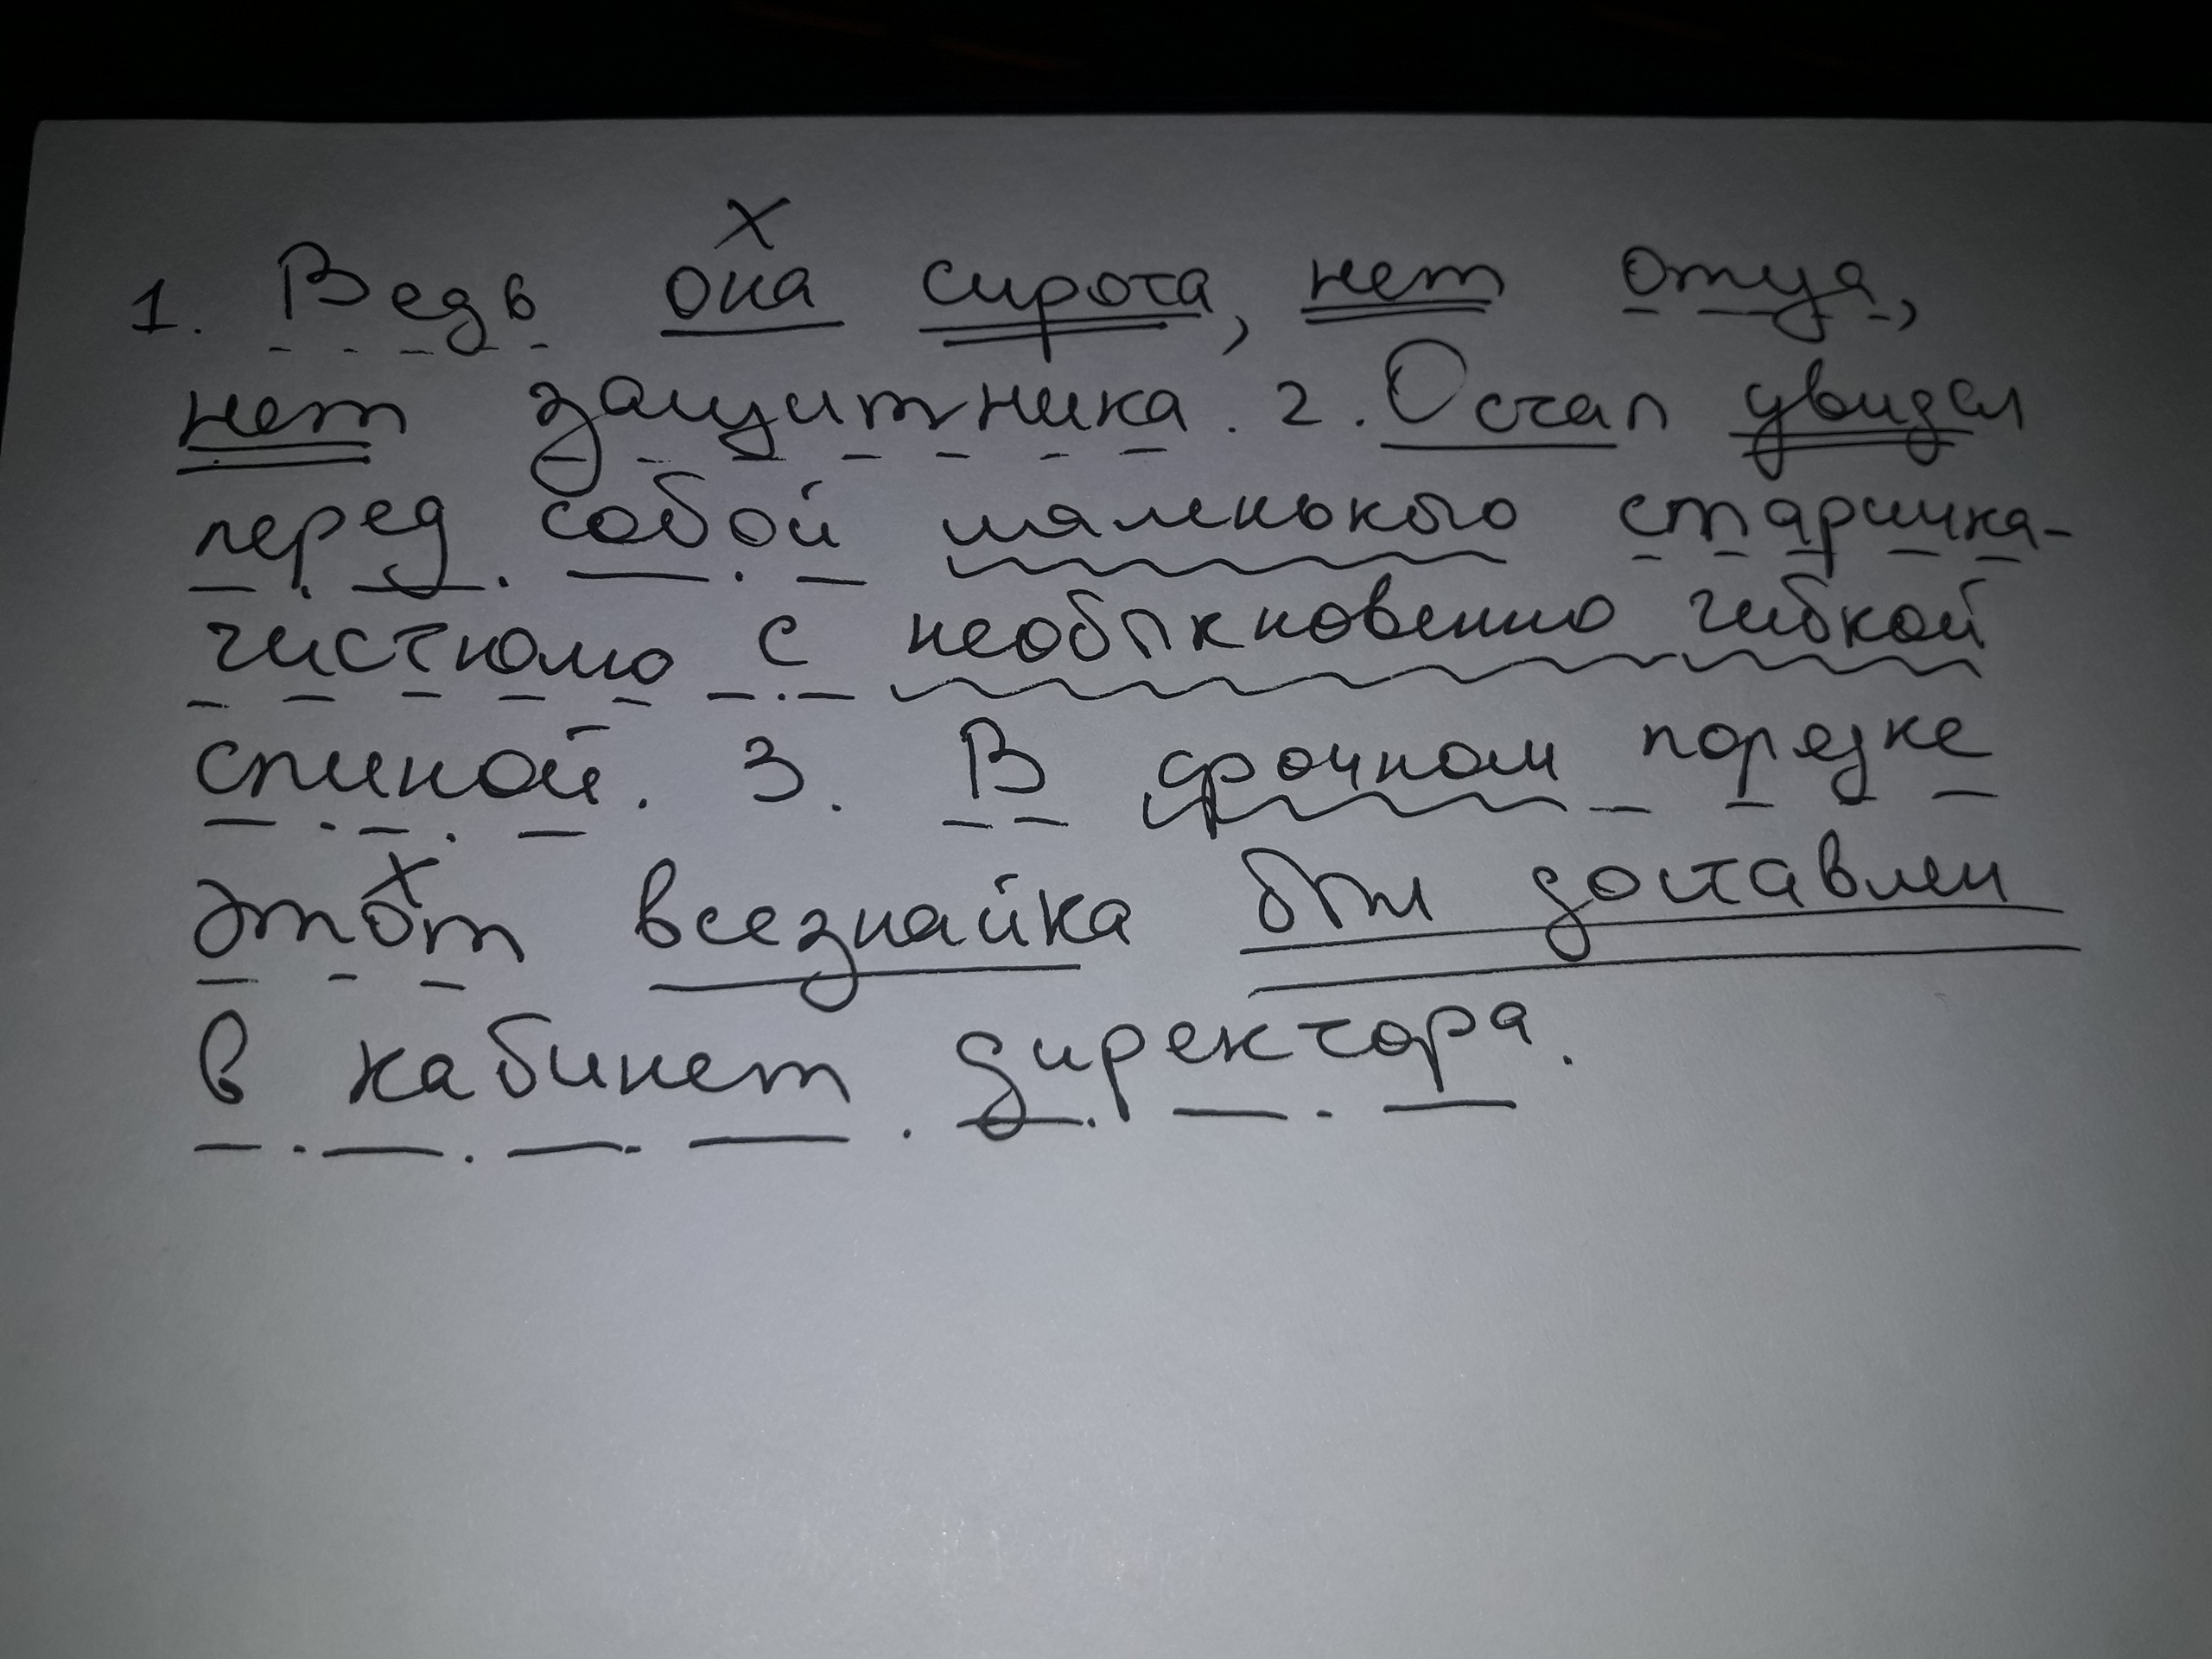 1. Ведь она сирота, нет отца,
нет защитника. 2. Остап увидел
перед собой маленького старичка-
чистюлю с необыкновенно гибкой
спиной. 3. В срочном порядке
этот всезнайка был доставлен
в кабинет директора.